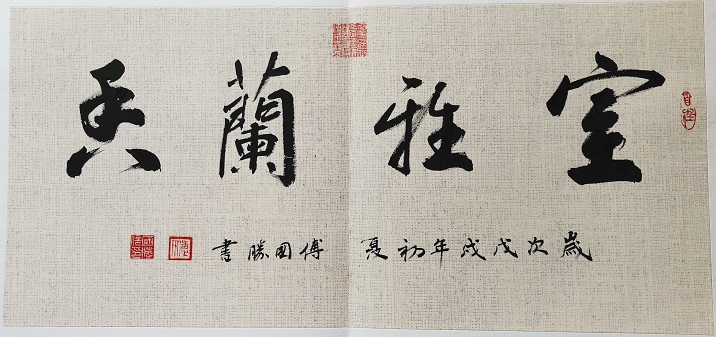 室雅蘭香
歲次戊戌年初夏 傅国勝書